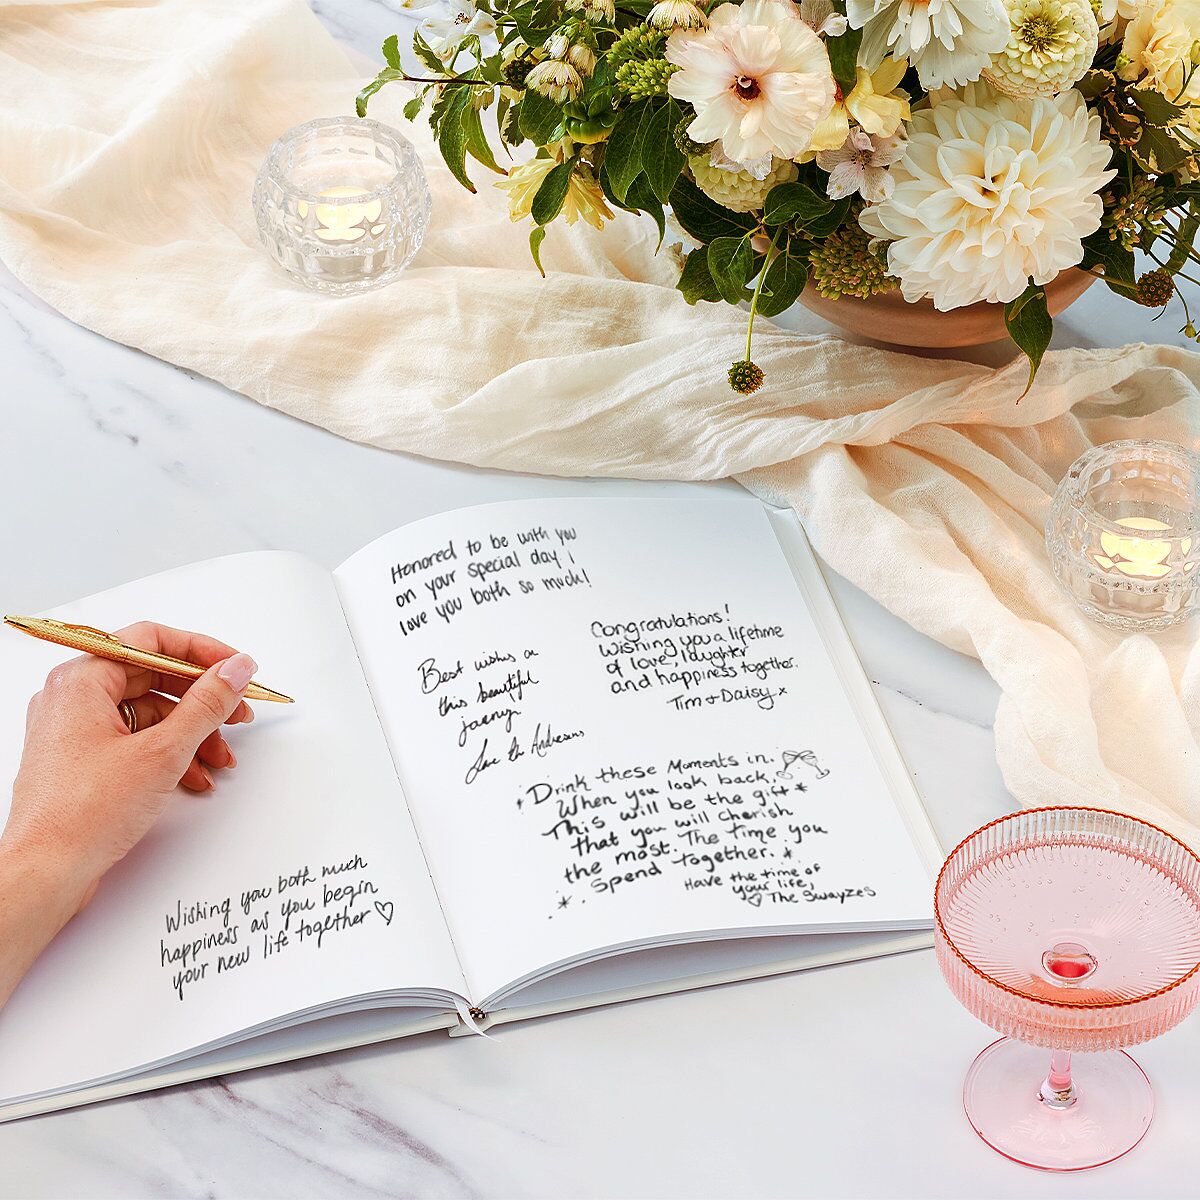 Wishing you both much
happiness as you begin
your new life together ♡
Honored to be with you
on your special day I
love you both so much!
Congratulations!
Wishing you a lifetime
of love, laughter
and happiness together.
Tim + Daisy x
Best wishes on
this beautiful
journey
Love the Andersens
Drink these Moments in.
When you look back,
This will be the gift
that you will cherish
the most. The time you
spend together.
Have the time of
your life,
♡ The Swayzes